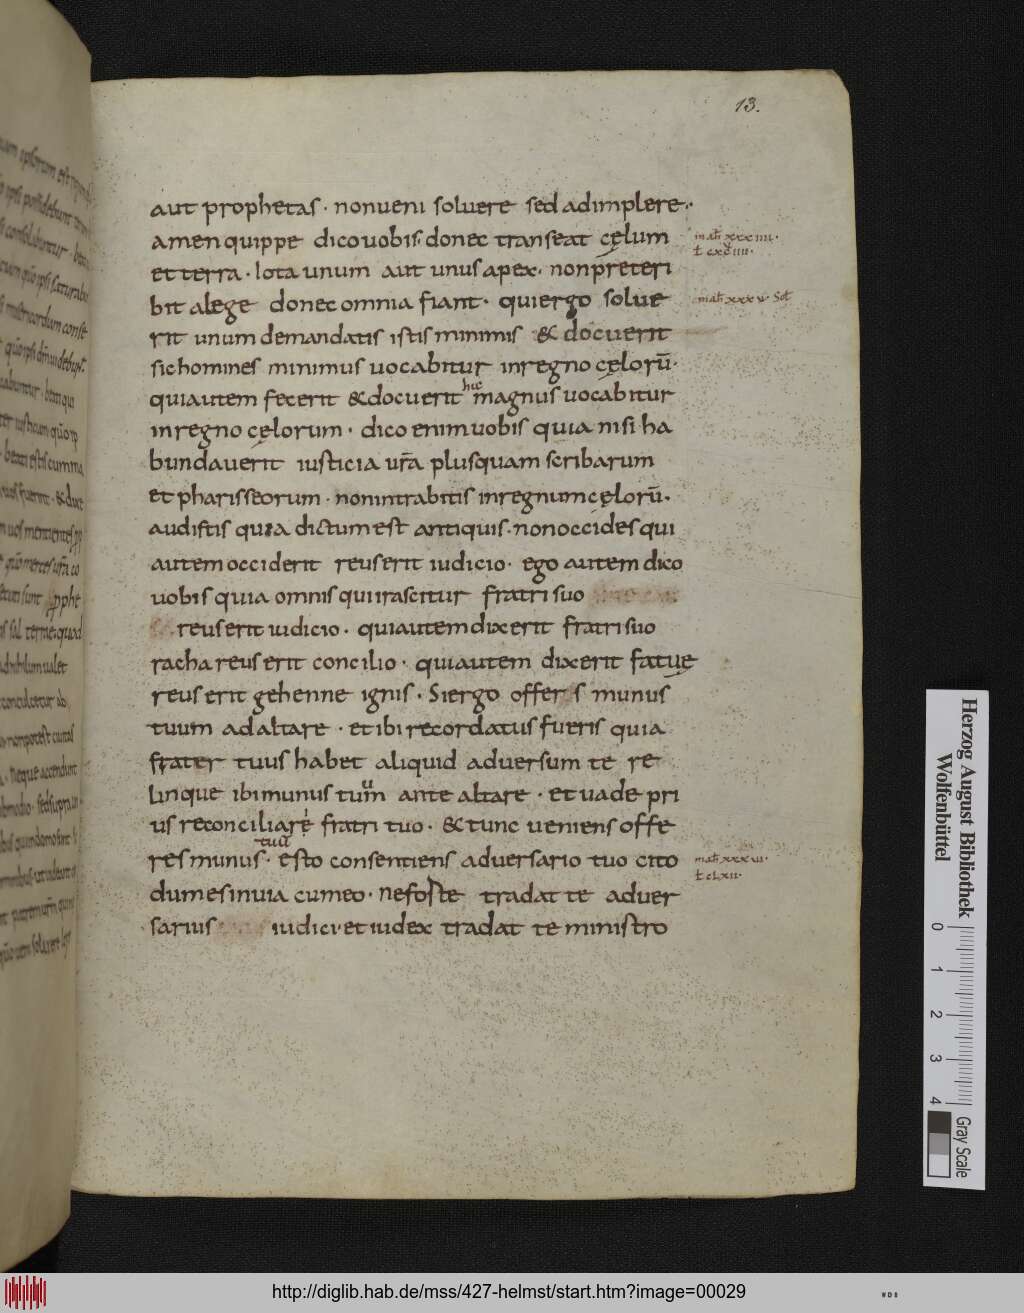 13.
aut prophetas · nonueni soluere sed adimplere ·
amen quippe dico uobis · donec transeat cęlum
et terra · Iota unum aut unus apex · non preteri
bit alege donec omnia fiant · qui ergo solue
rit unum demandatis istis minimis & docuerit
sic homines minimus uocabitur inregno cęlorū ·
qui autem fecerit & docuerit hic magnus uocabitur
in regno cęlorum · dico enim uobis quia nisi ha
bundauerit iusticia ur̄a plusquam scribarum
et pharisseorum · non intrabitis inregnum cęlorū ·
audistis quia dictum est antiquis · non occides qui
autem occiderit reus erit iudicio · ego autem dico
uobis quia omnis qui irascitur fratri suo
reus erit iudicio · qui autem dixerit fratri suo
racha reus erit concilio · qui autem dixerit fatuę
reus erit gehenne ignis · Si ergo offer s munus
tuum ad altare · et ibi recordatus fueris quia
frater tuus habet aliquid aduersum te re
linque ibi munus tuum ante altare · et uade pri
us reconciliare fratri tuo · & tunc ueniens offe
res munus tuū · esto consentiens aduersario tuo cito
dum es in uia cum eo · ne forte tradat te aduer
sarius iudici · et iudex tradat te ministro
Herzog August Bibliothek
Wolfenbüttel
0 1 2 3 4
Gray Scale
http://diglib.hab.de/mss/427-helmst/start.htm?image=00029